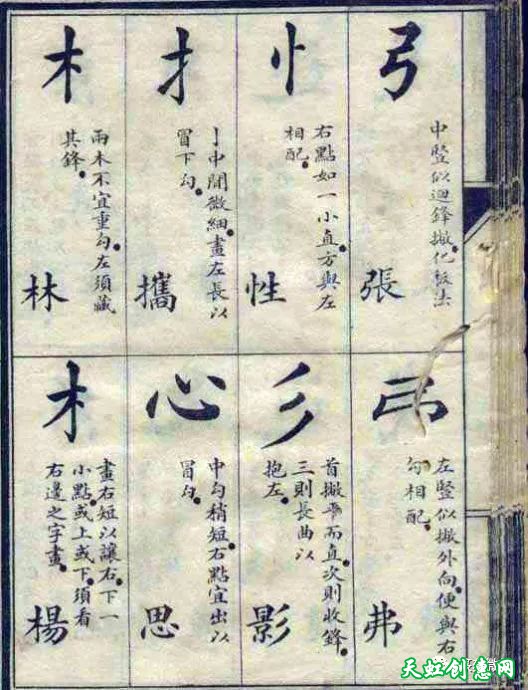 弓
中豎似迴鋒撇。化板法
張
忄
右點如一小直。方與左
相配。
性
扌
亅中間微細。畫左長以
冒下勾。
攜
木
兩木不宜重勾。左須藏
其鋒。
林
左豎似撇外向。便與右
勾相配。
弗
彡
首撇平而直。次則收鋒。
三則長曲以
抱左。
影
心
中勾稍短。右點宜出以
冒勾。
思
木
畫右短以讓右。下一
小點。或上或下。須看
右邊之字畫。
楊
天虹创意网